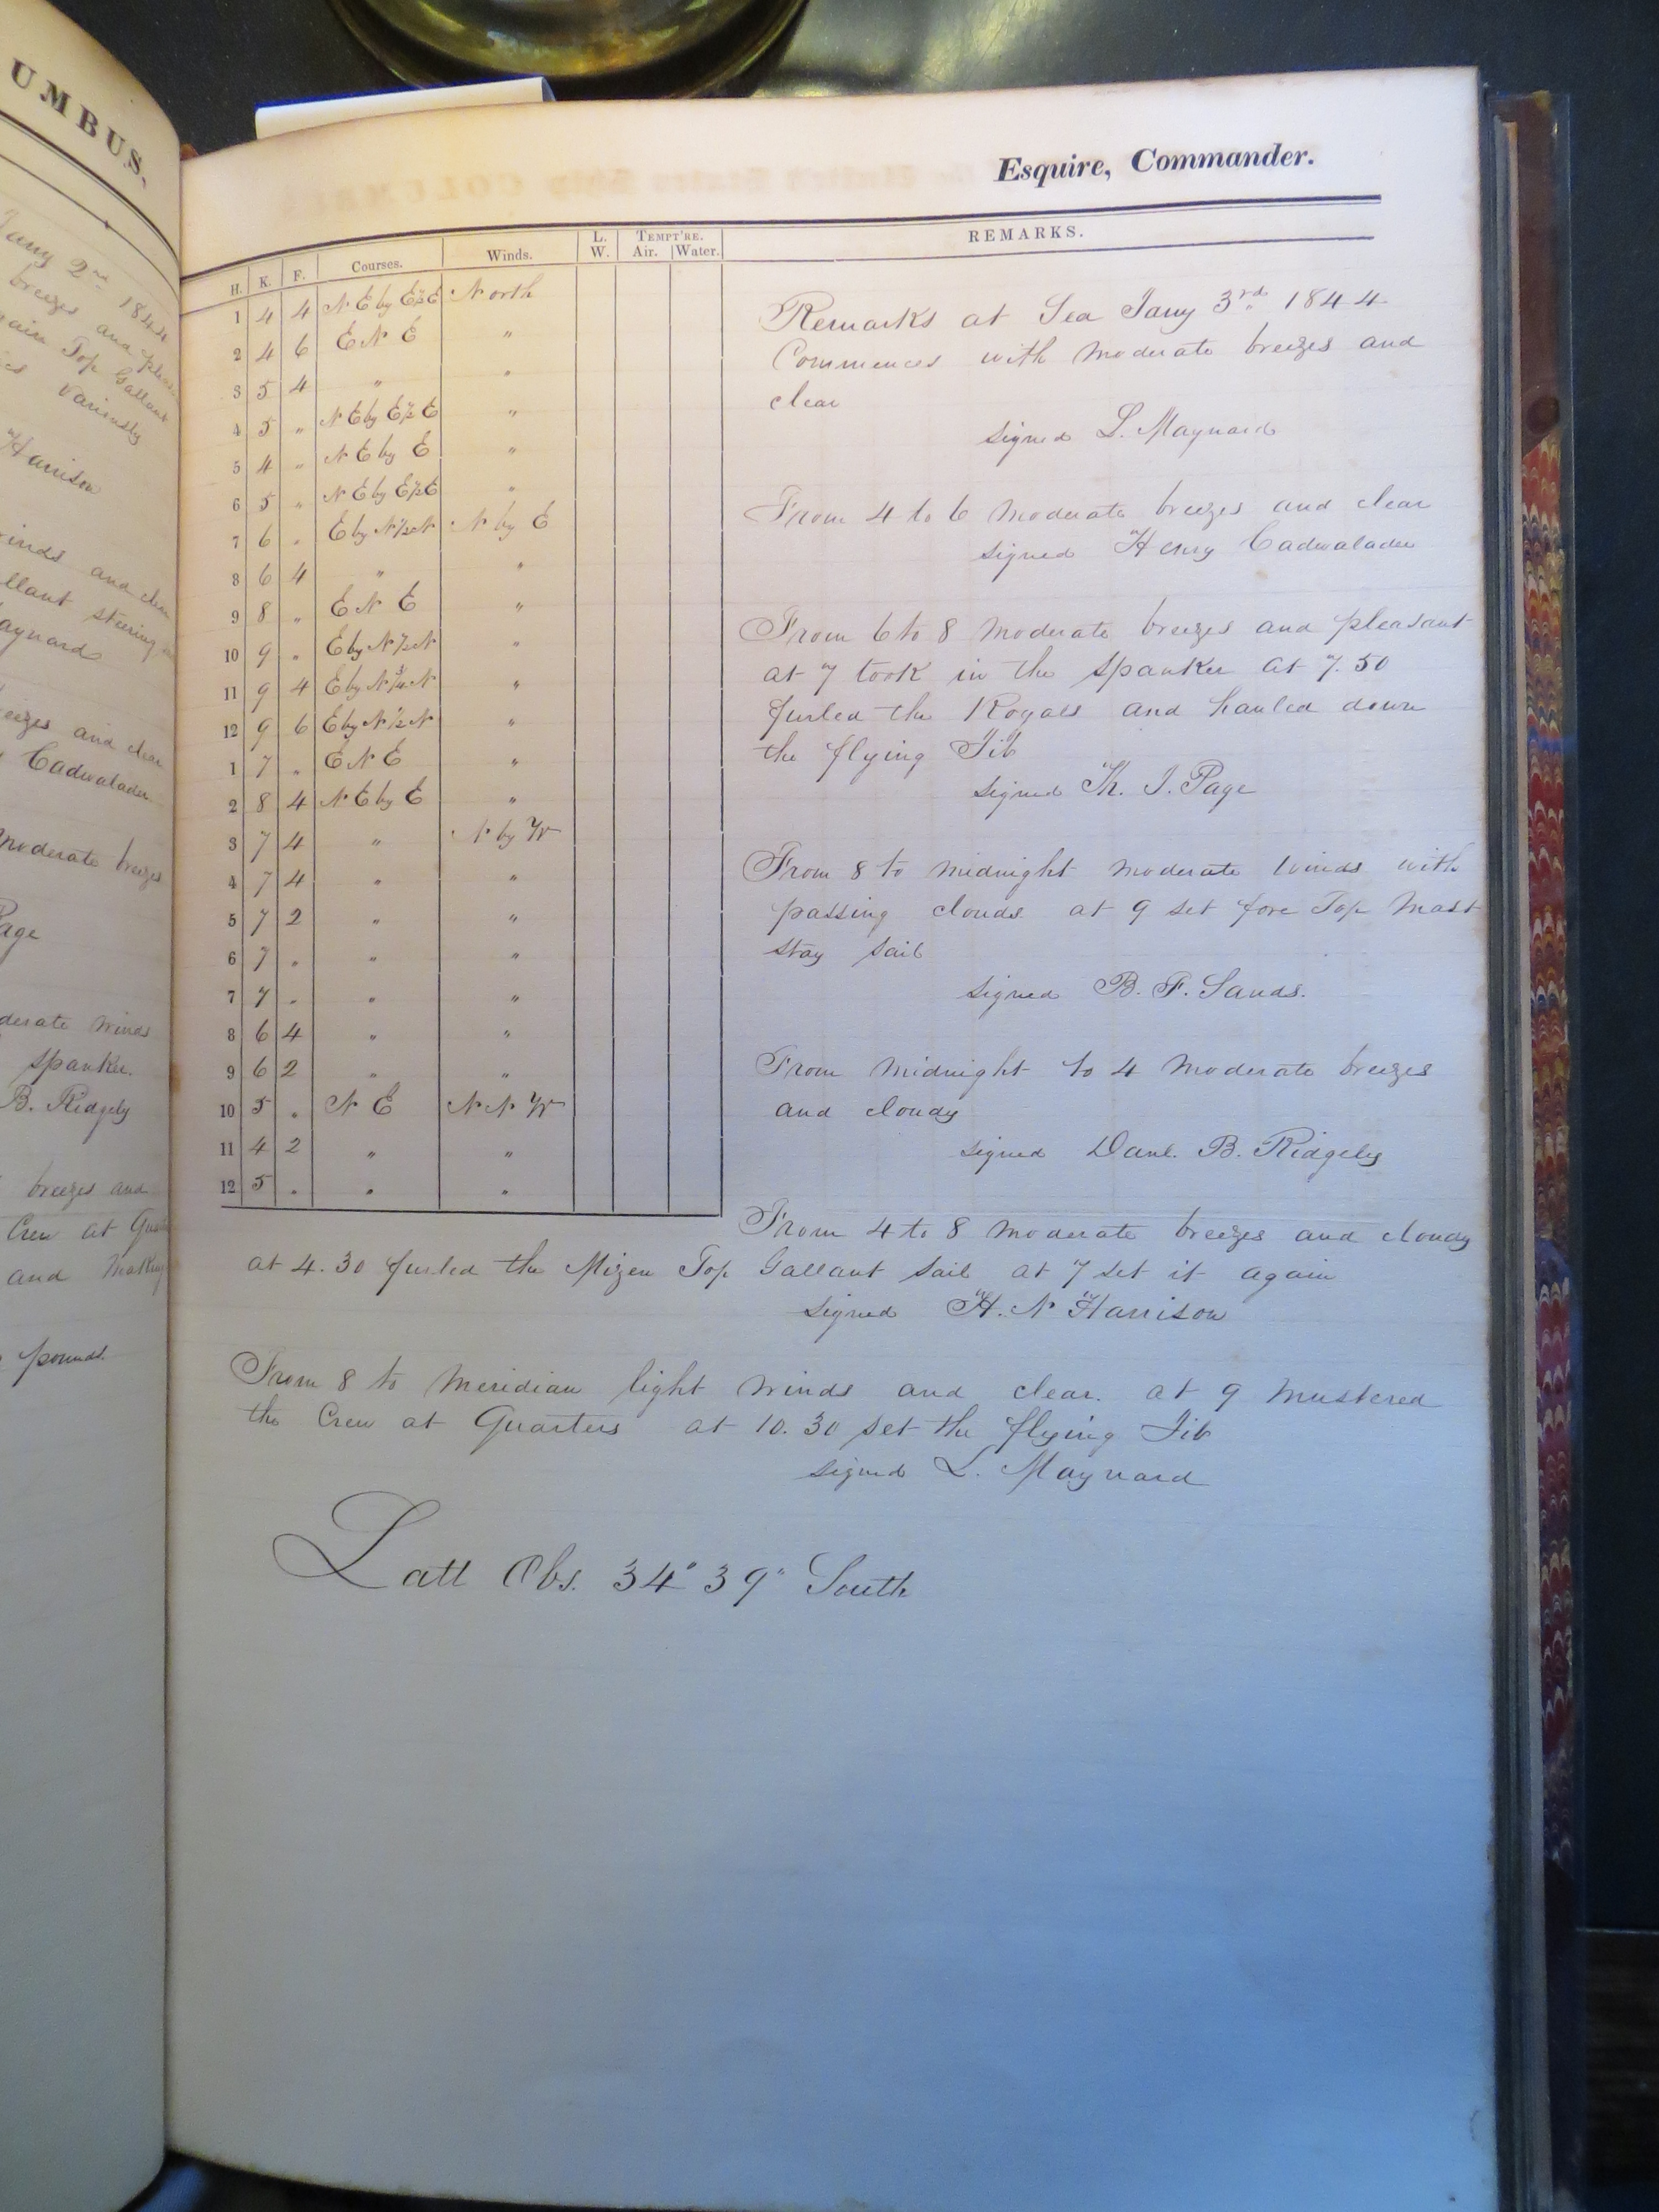 UMBUS.
Jany 2nd 1844
breezes and
Top Gallant
Variously
Harrison
winds and clear
steering
aynard
and clear
Cadwalader
moderate breezes
Page
winds
spanker.
B. Ridgely
breezes and
Crew at
and
pounds.
Esquire, Commander.
H. K. F. Courses. Winds. L. W. TEMPT'RE. Air. Water. REMARKS.
1 4 4 N E by E½E North
2 4 6 E N E "
3 5 4 " "
4 5 " N E by E½E "
5 4 " N E by E "
6 5 " N E by E½E "
7 6 " E by N½N N by E
8 6 4 " "
9 8 " E N E "
10 9 " E by N½N "
11 9 4 E by N¾N "
12 9 6 E by N½N "
1 7 " E N E "
2 8 4 N E by E "
3 7 4 " N by W
4 7 4 " "
5 7 2 " "
6 7 " " "
7 7 " " "
8 6 4 " "
9 6 2 " "
10 5 " N E N N W
11 4 2 " "
12 5 " " "
Remarks at Sea Jany 3rd 1844
Commences with moderate breezes and
clear
signed L. Maynard
From 4 to 6 moderate breezes and clear
signed Henry Cadwalader
From 6 to 8 moderate breezes and pleasant
at 7 took in the spanker at 7.50
furled the Royals and hauled down
the flying Jib
signed Th. J. Page
From 8 to midnight moderate winds with
passing clouds at 9 set fore Top Mast
stay sail
signed B. F. Sands.
From midnight to 4 moderate breezes
and cloudy
signed Danl. B. Ridgely
From 4 to 8 moderate breezes and cloudy
at 4.30 furled the Mizen Top Gallant sail at 7 set it again
signed H. N Harrison
From 8 to Meridian light winds and clear. at 9 mustered
the Crew at Quarters at 10.30 set the flying Jib
signed L. Maynard
Latt Obs. 34° 39" South